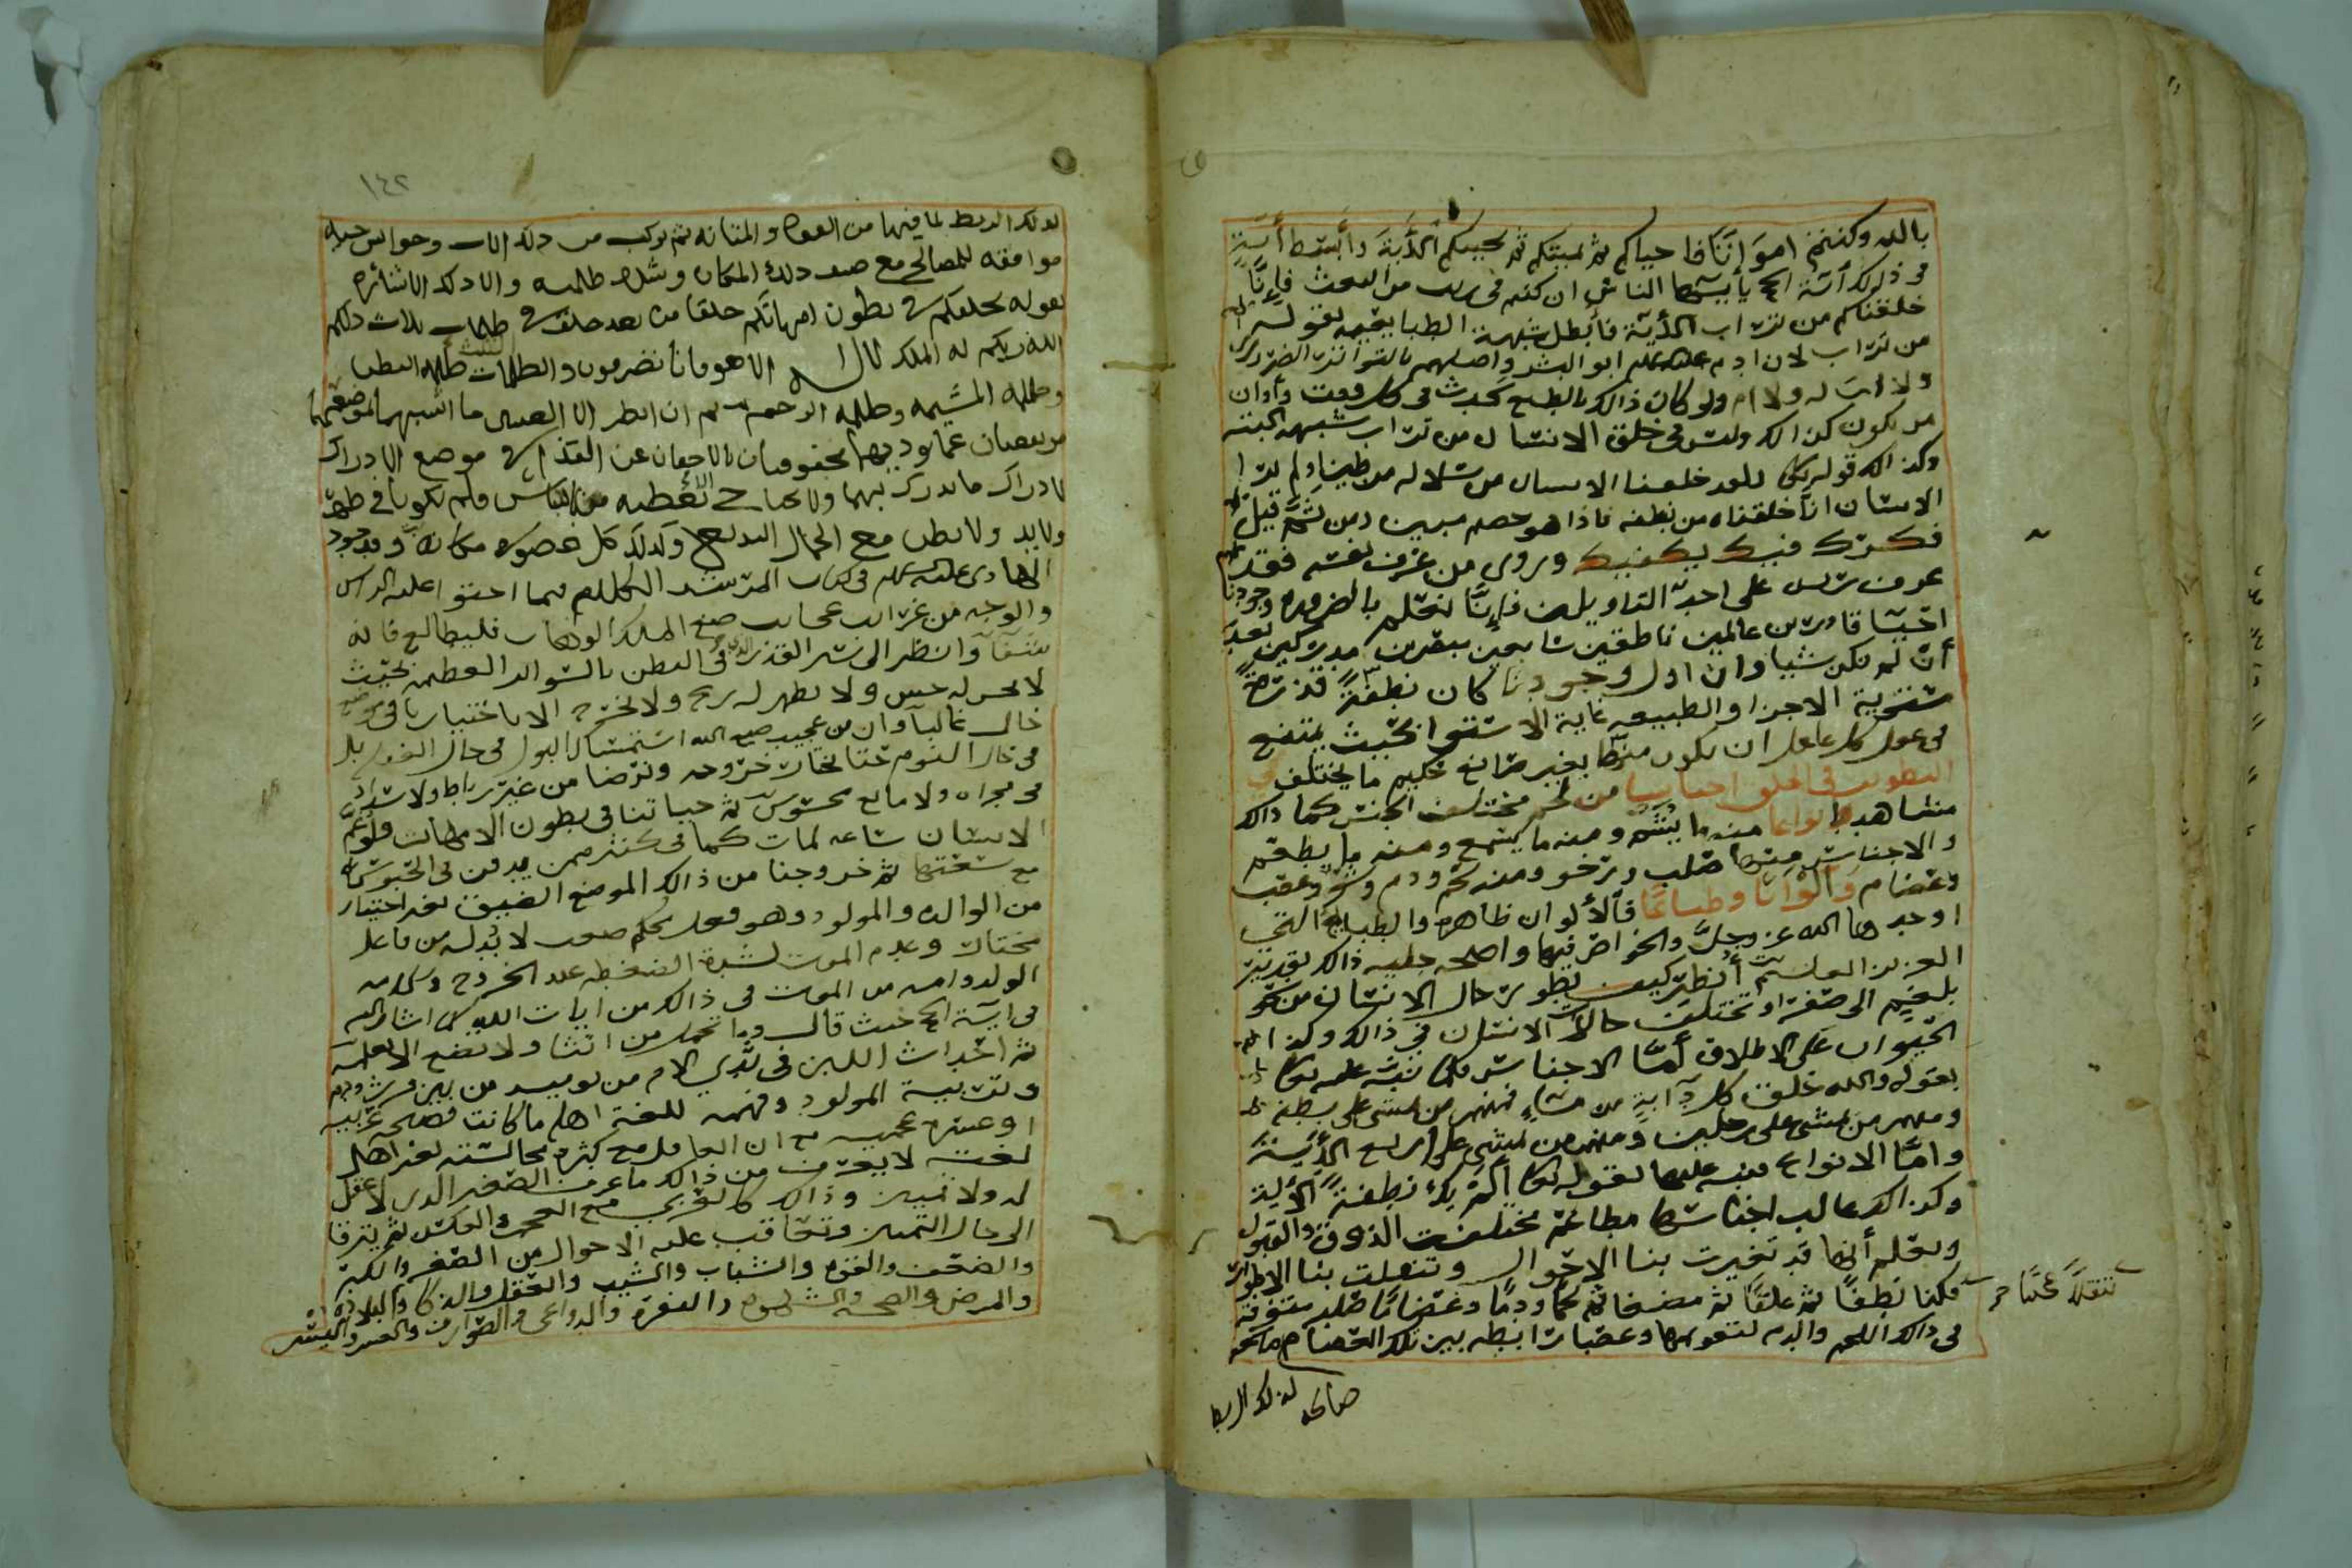 بالله وكنتم امواتا فاحياكم ثم يميتكم ثم يحييكم الآية وأبسط أية
في ذلك أية الحج يا أيها الناس ان كنتم في ريب من البعث فإنا
خلقناكم من تراب الآية فأبطل شبهة الطبايعيه بقوله
من تراب لان ادم عليلم ابو البشر واصلهم بالتواتر الضروري
ولا اب له ولا ام ولو كان ذالك بالطبع لحدث في كل وقت وأوان
من يكون كذالك وليس في خلق الانسان من تراب شبهه البته
وكذالك قوله تعالى ولقد خلقنا الانسان من سلاله من طين اولم يرا
الانسان انا خلقناه من نطفه فاذا هو خصيم مبين ومن ثم قيل
فكرك فيك يكفيك وروي من عرف نفسه فقد
عرف ربه على احد التاويلين فإنا نعلم بالضروره وجودنا
احيا قادرين عالمين ناطقين سامعين مبصرين مدركين بعد
أن لم نكن شيا وان اول وجودنا كان نطفة قذرة
مستوية الاجزا والطبيعه غاية الاستوا بحيث يمتنع
في عقل كل عاقل ان يكون منها بغير صانع حكيم ما يختلف
اجناسا من لحم مختلف الجنس كما ذالك
مشاهد وانواعا منه ما يشم ومنه ما يسمع ومنه ما يطعم
والاجناس منها صلب ورخو ومنه لحم ودم وعصب
وعضام وألوانا وطباعا فالألوان ظاهره والطبايع التي
اوجدها الله عز وجل والخواص فيها واصلحه عليه ذالك بتقدير
العزيز العليم أنظر كيف يطور حال الانسان من نحو
بلغم الى صفرا وتختلف حالات الانسان في ذالك وكذا
الحيوان على الاطلاق أما الاجناس فكما نبه عليه تعالى
بقوله والله خلق كل دآبة من ماء فمنهم من يمشي على بطنه
ومنهم من يمشي على رجلين ومنهم من يمشي على اربع الأية
واما الانواع فنبه عليها بقوله تعالى ألم يك نطفة الأية
وكذالك غالب اجناسها مطاعمه مختلفة الذوق والقبول
ونعلم أنها قد تغيرت بنا الاحوال وتنقلت بنا الاطوار
تنقلا عجيبا
فكنا نطفا ثم علقا ثم مضغا ثم لحما ودما وعضاما صلبه متفرقه
في ذالك اللحم والدم لتقويمها وعصبا رابطه بين تلك العضام صالحه
صالحه لذلك الربط
١٤٢
لذلك الربط لما فيها من القوه والمتانه ثم تركب من ذلك الات وحواس حيه
موافقه للمصالح مع ضيق ذلك المكان وشدة ظلمته والا ذلك الاشارة
بقوله يخلقكم في بطون امهاتكم خلقا من بعد خلق في ظلمات ثلاث ذلكم
الله ربكم له الملك لا اله الا هو فأنا تصرفون والظلمات الثلاث ظلمة البطن
وظلمة المشيمه وظلمة الرحم ثم ان انظر الى العينين ما اشبههما لموضعهما
مرتفعان عما يوذيهما محفوفتان بالاجفان عن القذى في موضع الادراك
لادراك ما يدرك بهما ولا يحتاج الى تغطيه من اللباس ولم تكونا في ظهر
ولا يد ولا بطن مع الجمال البديع وكذلك كل عضو في مكانه وقد جود
الهادي عليه السلام في كتاب المسترشد الكلام فيما احتوا عليه الراس
والوجه من غرائب عجائب صنع الملك الوهاب فليطالع فانه
شفا وانظر الى ستر القذر الذي في البطن بالسواتر العظيمه بحيث
لا يحس له حس ولا يظهر له ريح ولا يخرج الا باختيارنا في موضع
خال غالبا وان من عجيب صنع الله استمساك البول في حال الغفله بل
في حال النوم حتا نختار خروجه ونرضا من غير رباط ولا سداد
في مجراه ولا مانع محسوس ثم حياتنا في بطون الامهات ولو غم
الانسان ساعه لمات كما في كثير ممن يدفن في الحبوس
مع سعتها ثم خروجنا من ذالك الموضع الضيق بغير اختيار
من الوالده والمولود وهو فعل محكم صعب لا بد له من فاعل
مختار وعدم الموت لشدة الضغطه عند الخروج وسلامه
الولد وامه من الموت في ذالك من ايات الله كما اشار اليه
في اية الحج حيث قال وما تحمل من انثا ولا تضع الا بعلمه
ثم احداث اللبن في ثدي الام من يومين من بين فرث ودم
وتربية المولود وفهمه للغة اهله ما كانت فصيحه عربيه
او عبريه عجميه مع ان العاقل مع كثرة مجالسته لغير اهل
لغته لا يعرف من ذالك ما عرف الصغير الذي لا عقل
له ولا تمييز وذالك كالعربي مع العجمي والعكس ثم يترقا
الى حال التمييز وتعاقب عليه الاحوال من الصغر والكبر
والضعف والقوه والشباب والشيب والعقل والذكا والبلاده
والمرض والصحه والشهوه والنفره والدواعي والصوارف والعسر واليسر